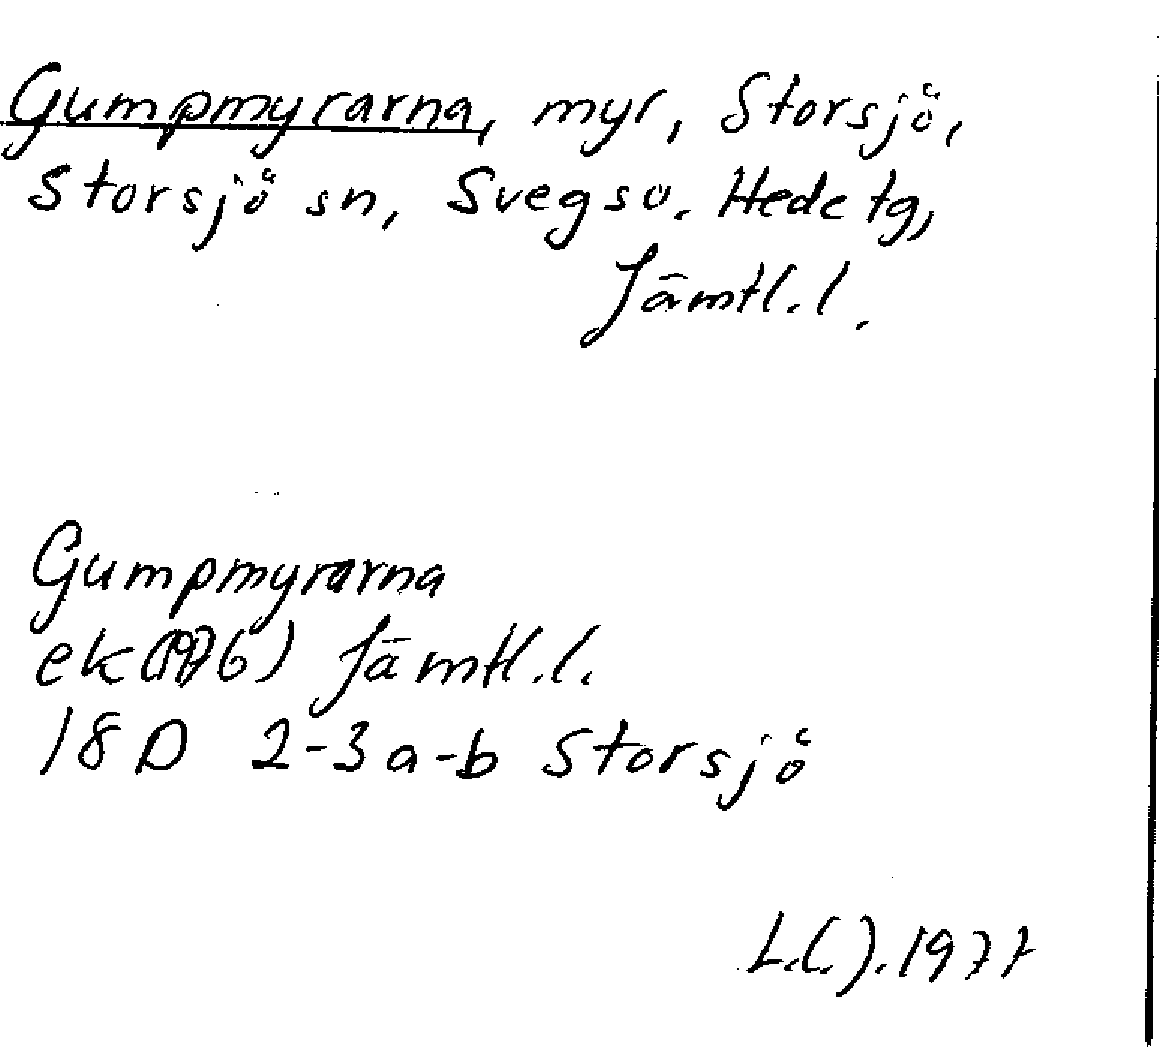 Gumpmyrarna, myr, Storsjö,
Storsjö sn, Svegs so. Hede tg,
Jämtl.l.
Gumpmyrarna
ek(1976) Jämtl.l.
18D 2-3a-b Storsjö
1977